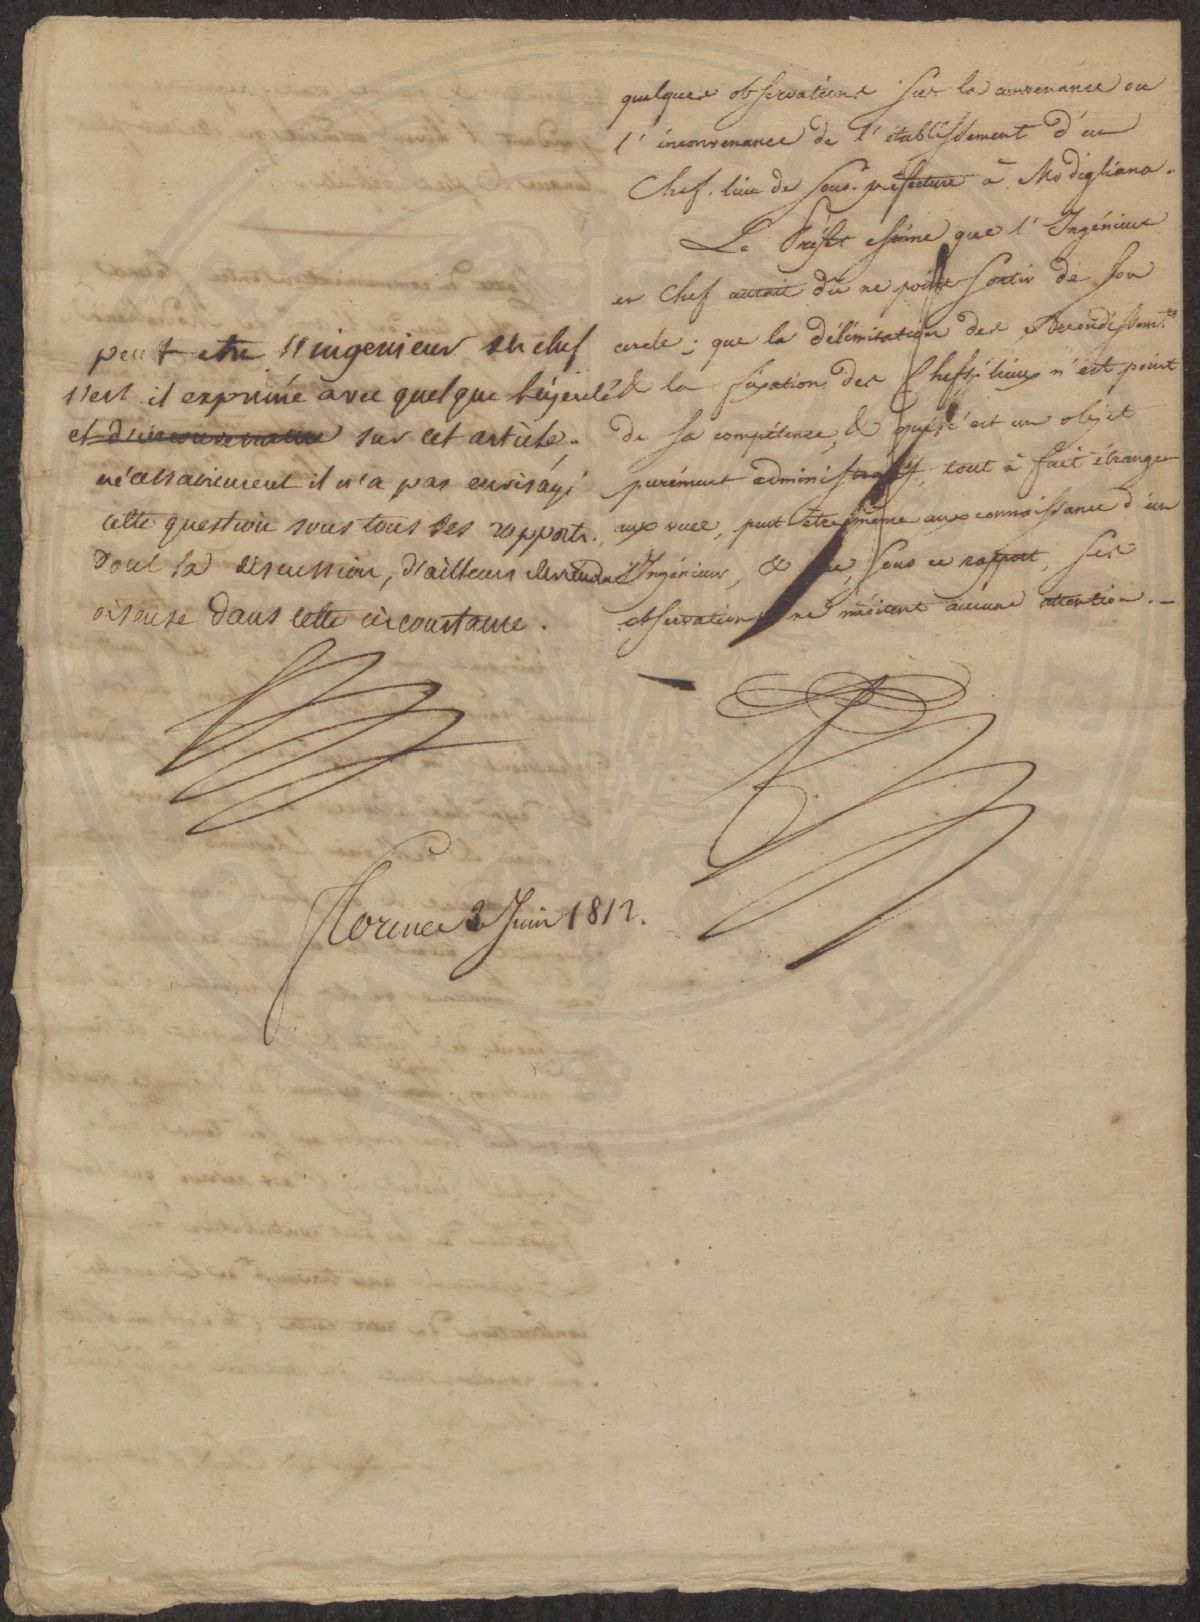 quelques observations sur la convenance ou
l'inconvenance de l'établissement d'un
Chef-lieu de sous-préfecture à Modigliana.
Le Préfet estime que l'Ingénieur
en Chef aurait dû ne point sortir de son
cercle; que la délimitation des Arrondissem.ts
& la fixation des Chefs-lieux n'est point
de sa compétence, & que c'est un objet
purement administratif, tout à fait étranger
aux vues, peut être même aux connaissances d'un
Ingénieur, & que, sous ce rapport, ses
observations ne méritent aucune attention. —
peut etre l'ingenieur en chef
s'est il exprimé avec quelque légereté
et d'inconvenance sur cet article.
nécessairement il n'a pas envisagé
cette question sous tous ses rapports.
dont la discussion, d'ailleurs
oiseuse dans cette circonstance.
Florence 3 Juin 1812.